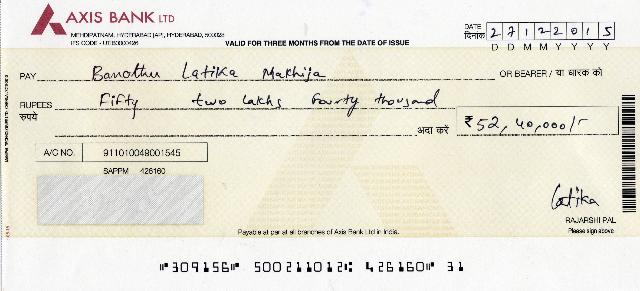 AXIS BANK LTD
MEHDIPATNAM, HYDERABAD [AP], HYDERABAD, 500028
IFS CODE - UTIB0000426
VALID FOR THREE MONTHS FROM THE DATE OF ISSUE
DATE दिनांक 27122015
D D M M Y Y Y Y
PAY Banothu Latika Makhija OR BEARER / या धारक को
RUPEES रुपये Fifty two lakhs fourty thousand
अदा करें ₹ 52,40,000/-
A/C NO. 911010049001545
SAPPM 426160
Latika
RAJARSHI PAL
Please sign above
Payable at par at all branches of Axis Bank Ltd in India.
⑈309156⑈ 500211012⑆ 426160⑈ 31